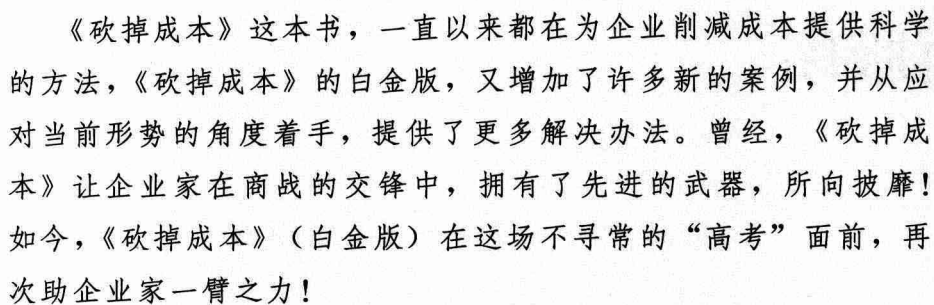 《砍掉成本》这本书，一直以来都在为企业削减成本提供科学
的方法，《砍掉成本》的白金版，又增加了许多新的案例，并从应
对当前形势的角度着手，提供了更多解决办法。曾经，《砍掉成
本》让企业家在商战的交锋中，拥有了先进的武器，所向披靡！
如今，《砍掉成本》（白金版）在这场不寻常的“高考”面前，再
次助企业家一臂之力！